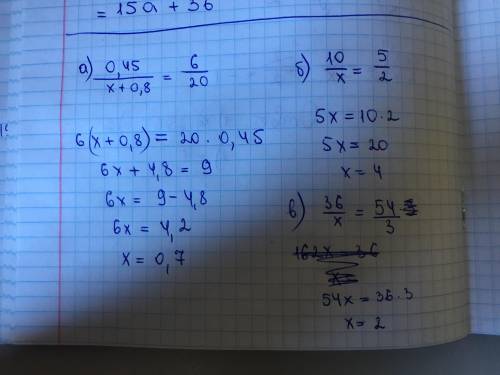 = 15a + 36
а) 0,45 / (x+0,8) = 6/20
6(x+0,8) = 20 · 0,45
6x + 4,8 = 9
6x = 9 - 4,8
6x = 4,2
x = 0,7
б) 10/x = 5/2
5x = 10 · 2
5x = 20
x = 4
в) 36/x = 54/3
54x = 36 · 3
x = 2